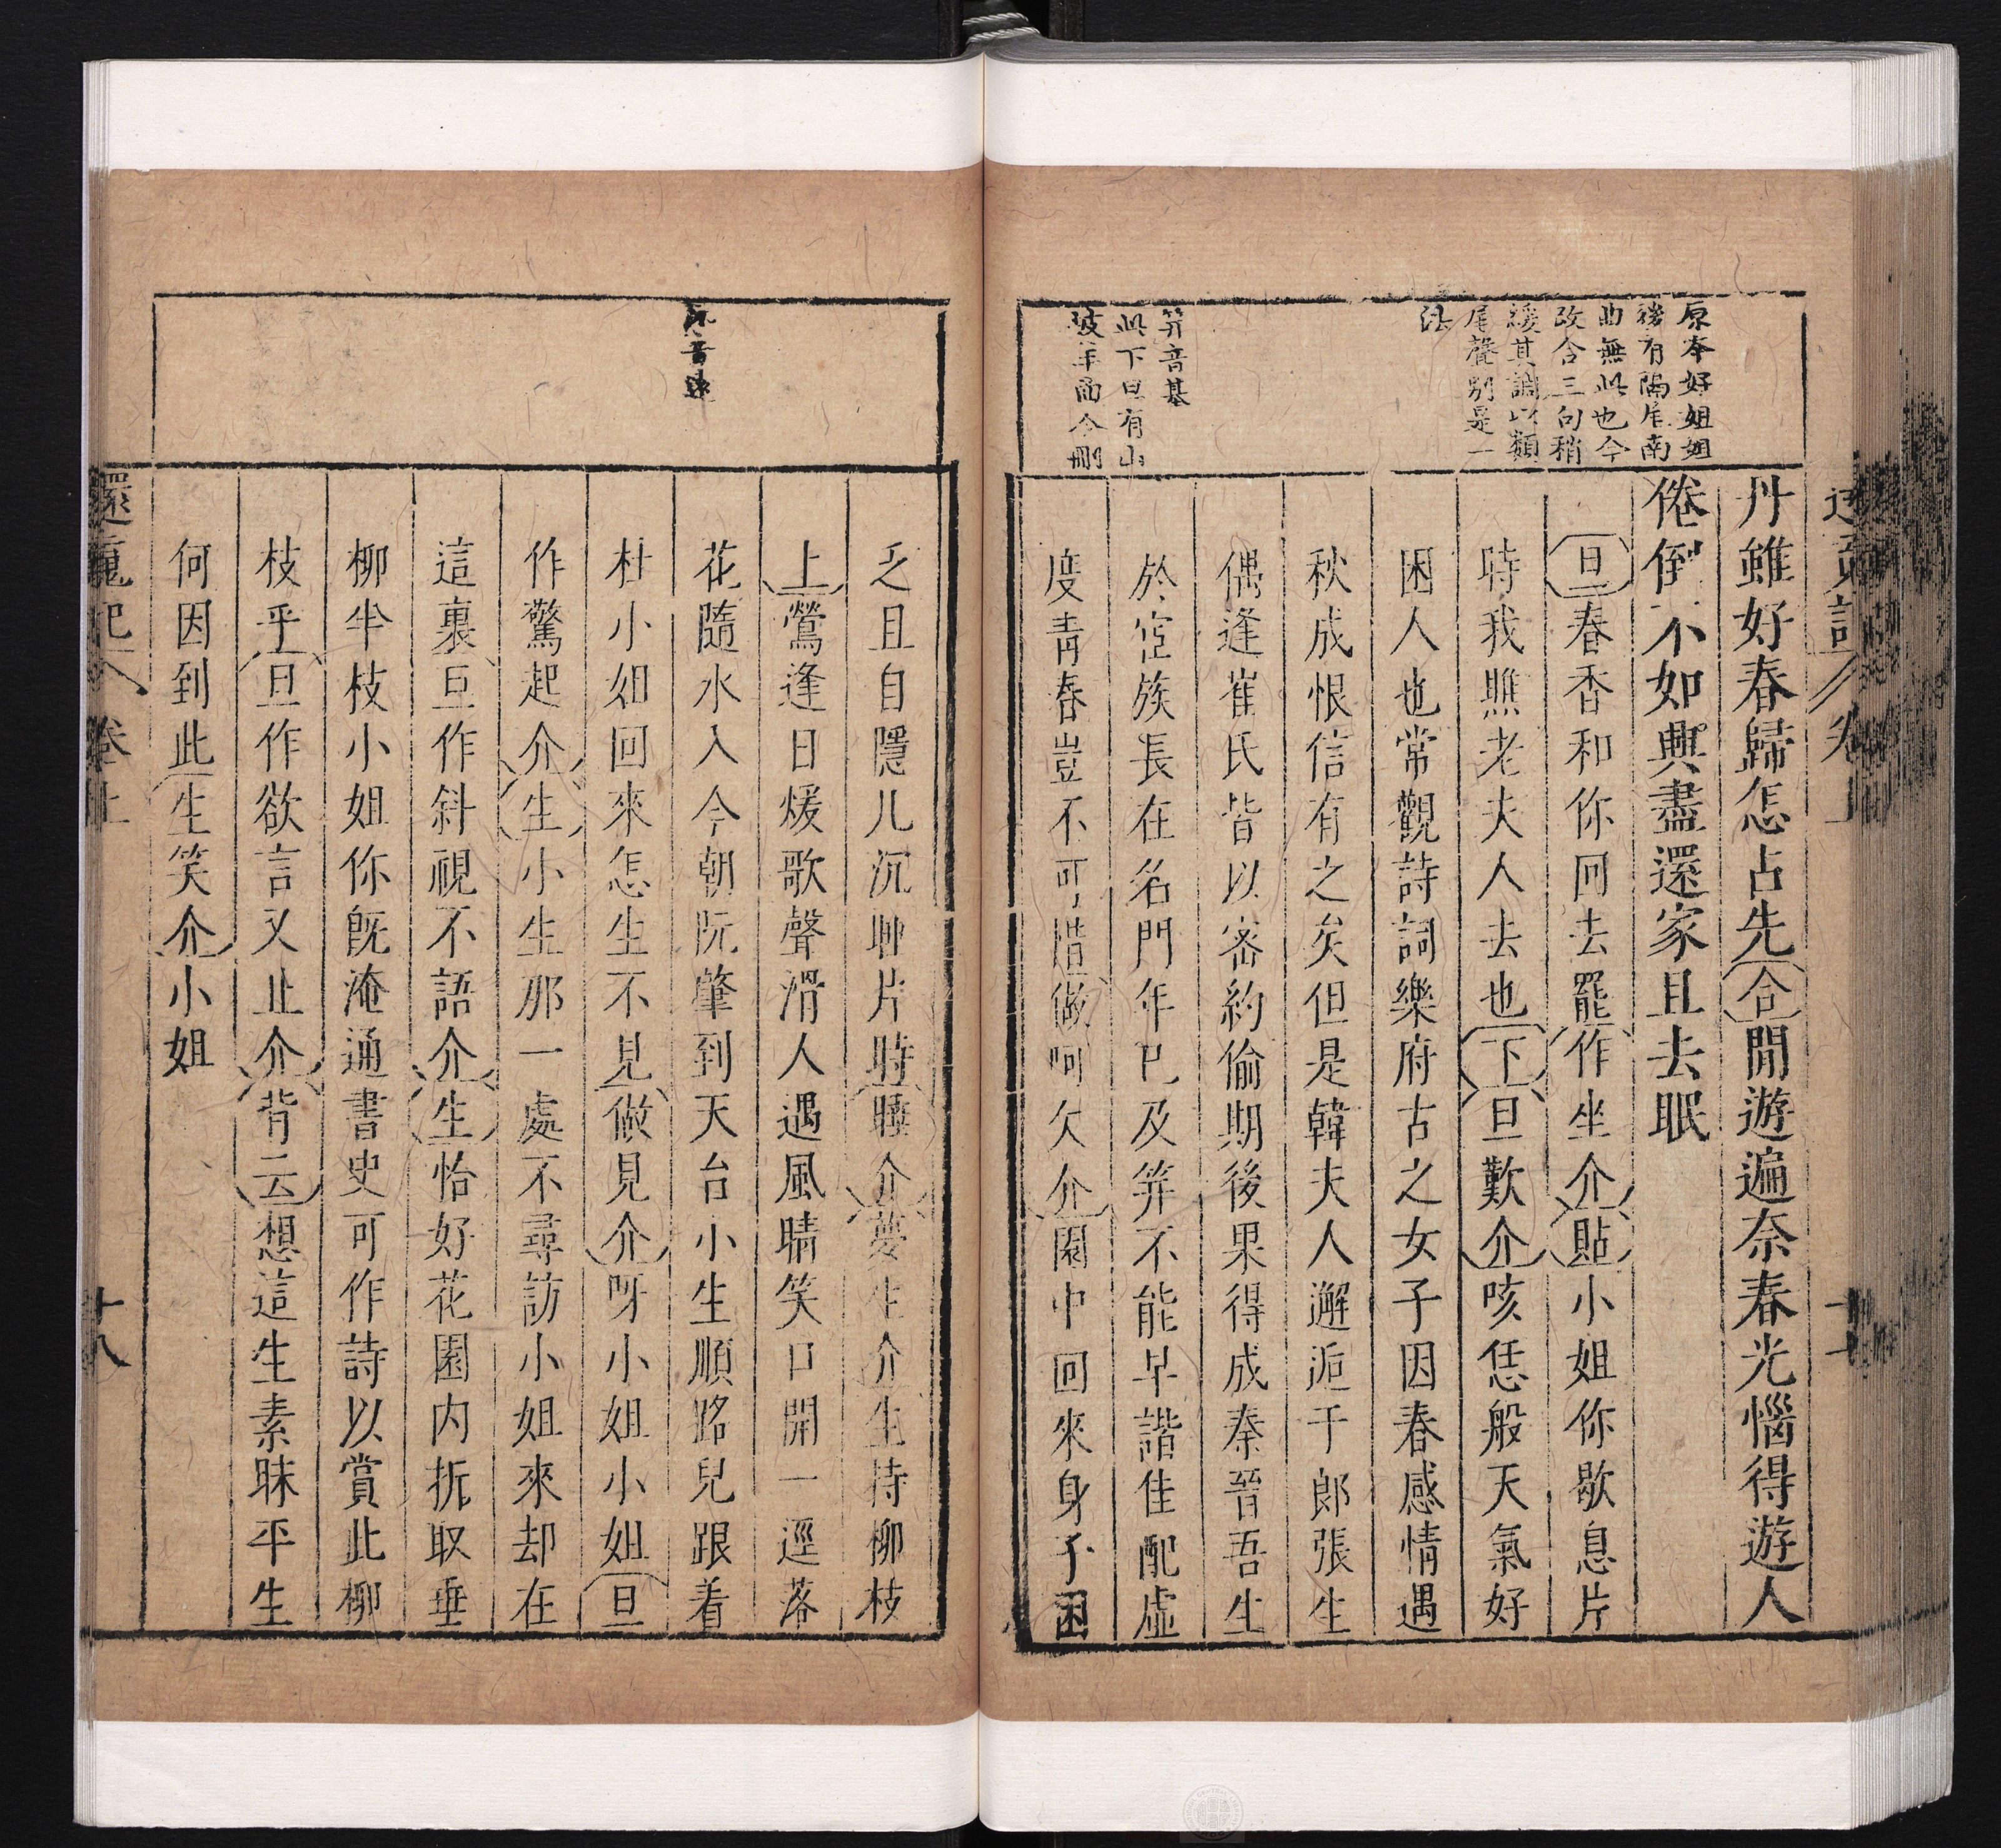 原本好姐姐
後有隔尾南
曲無此也今
改合三句稍
緩其調以類
尾聲別是一
法
笄音基
此下旦有山
坡羊曲今刪
丹雖好春歸怎占先合閒遊遍奈春光惱得遊人
倦倒不如興盡還家且去眠
旦春香和你回去罷作坐介貼小姐你歇息片
時我瞧老夫人去也下旦歎介咳恁般天氣好
困人也常觀詩詞樂府古之女子因春感情遇
秋成恨信有之矣但是韓夫人邂逅于郎張生
偶逢崔氏皆以密約偷期後果得成秦晉吾生
於宦族長在名門年已及笄不能早諧佳配虛
度青春豈不可惜做呵欠介園中回來身子困
音
乏且自隱几沉聊片時睡介夢生介生持柳枝
上鶯逢日煖歌聲滑人遇風晴笑口開一逕落
花隨水入今朝阮肇到天台小生順路兒跟着
杜小姐回來怎生不見做見介呀小姐小姐旦
作驚起介生小生那一處不尋訪小姐來却在
這裏旦作斜視不語介生恰好花園內折取垂
柳半枝小姐你旣淹通書史可作詩以賞此柳
枝乎旦作欲言又止介背云想這生素昧平生
何因到此生笑介小姐
還魂記 卷上 十八